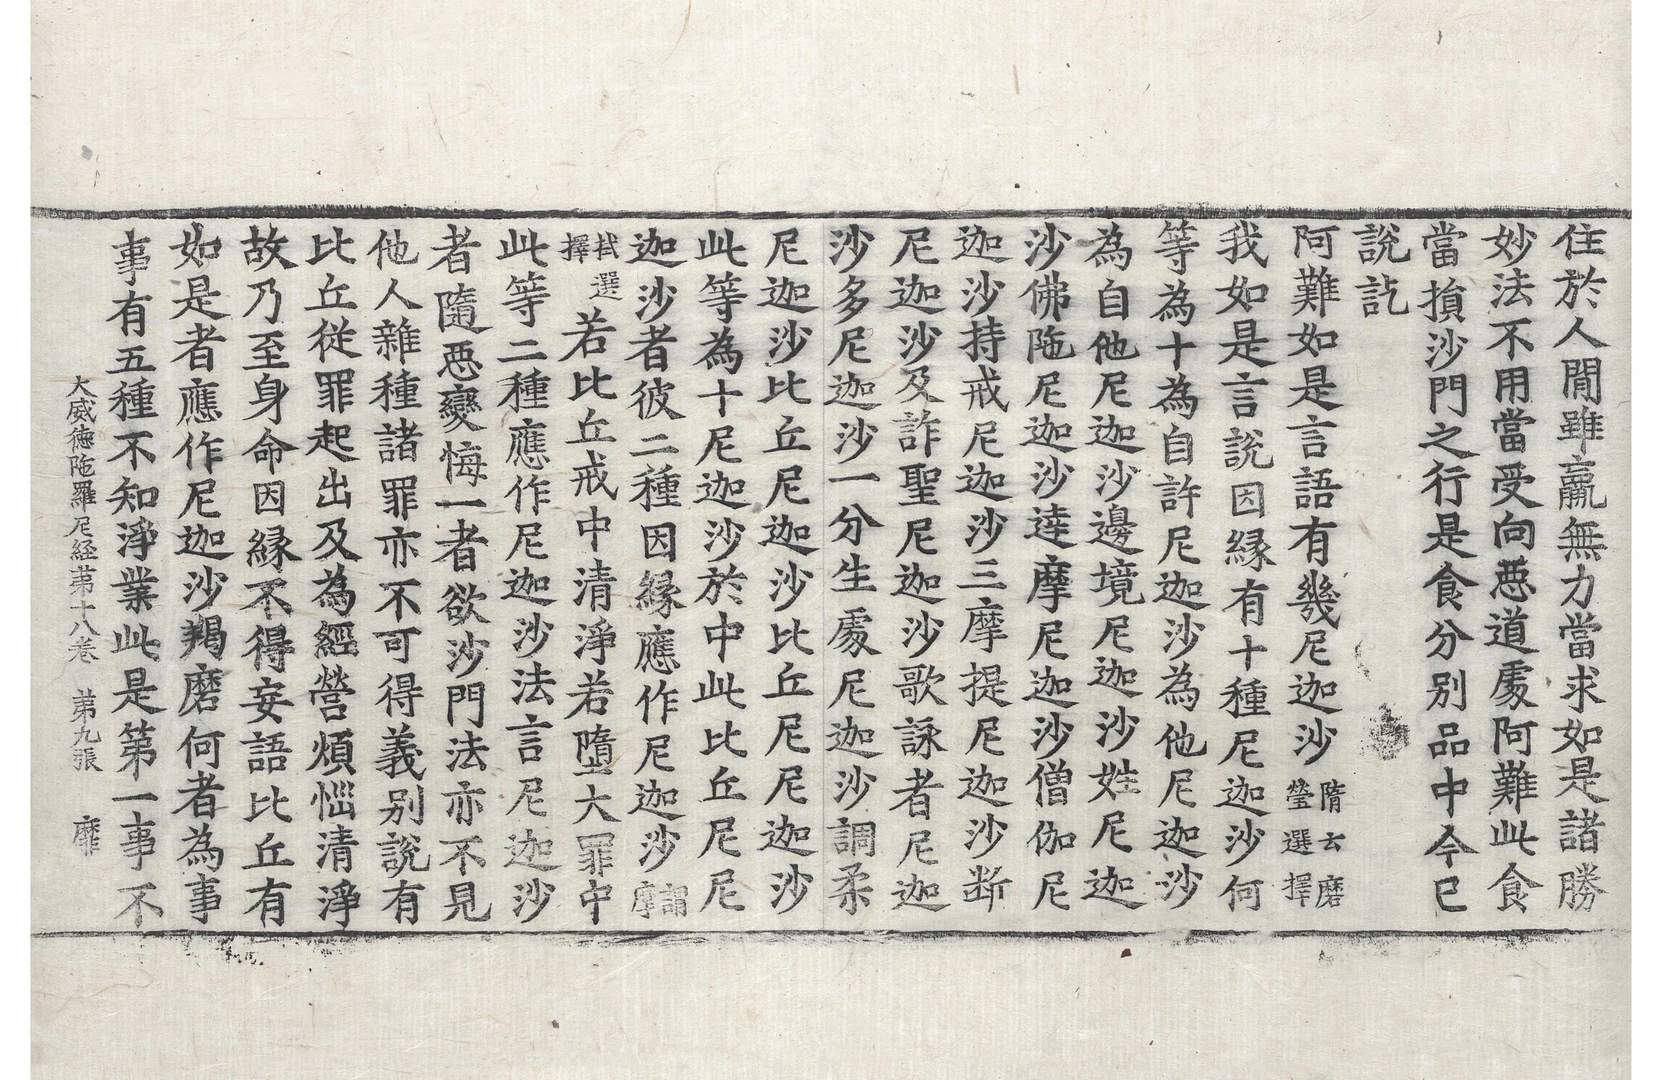 住於人閒雖羸無力當求如是諸勝
妙法不用當受向惡道處阿難此食
當損沙門之行是食分别品中今已
說訖
阿難如是言語有幾尼迦沙隋云磨瑩選擇
我如是言說因緣有十種尼迦沙何
等為十為自許尼迦沙為他尼迦沙
為自他尼迦沙邊境尼迦沙姓尼迦
沙佛陁尼迦沙達摩尼迦沙僧伽尼
迦沙持戒尼迦沙三摩提尼迦沙斷
尼迦沙及詐聖尼迦沙歌詠者尼迦
沙多尼迦沙一分生處尼迦沙調柔
尼迦沙比丘尼迦沙比丘尼尼迦沙
此等為十尼迦沙於中此比丘尼尼
迦沙者彼二種因緣應作尼迦沙謂摩
拭選擇若比丘戒中清淨若墮大罪中
此等二種應作尼迦沙法言尼迦沙
者隨惡變悔一者欲沙門法亦不見
他人雜種諸罪亦不可得義别說有
比丘從罪起出及為經營煩惱清淨
故乃至身命因緣不得妄語比丘有
如是者應作尼迦沙羯磨何者為事
事有五種不知淨業此是第一事不
大威德陁羅尼経苐十八卷　苐九張　靡